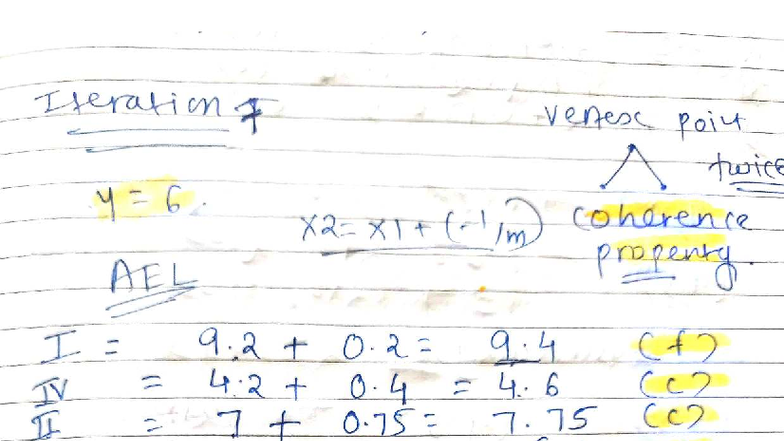 Iteration 7
vertex point
twice
y = 6.
x2 = x1 + (-1/m)
coherence
property.
AEL
I = 9.2 + 0.2 = 9.4 (f)
IV = 4.2 + 0.4 = 4.6 (c)
II = 7 + 0.75 = 7.75 (c)